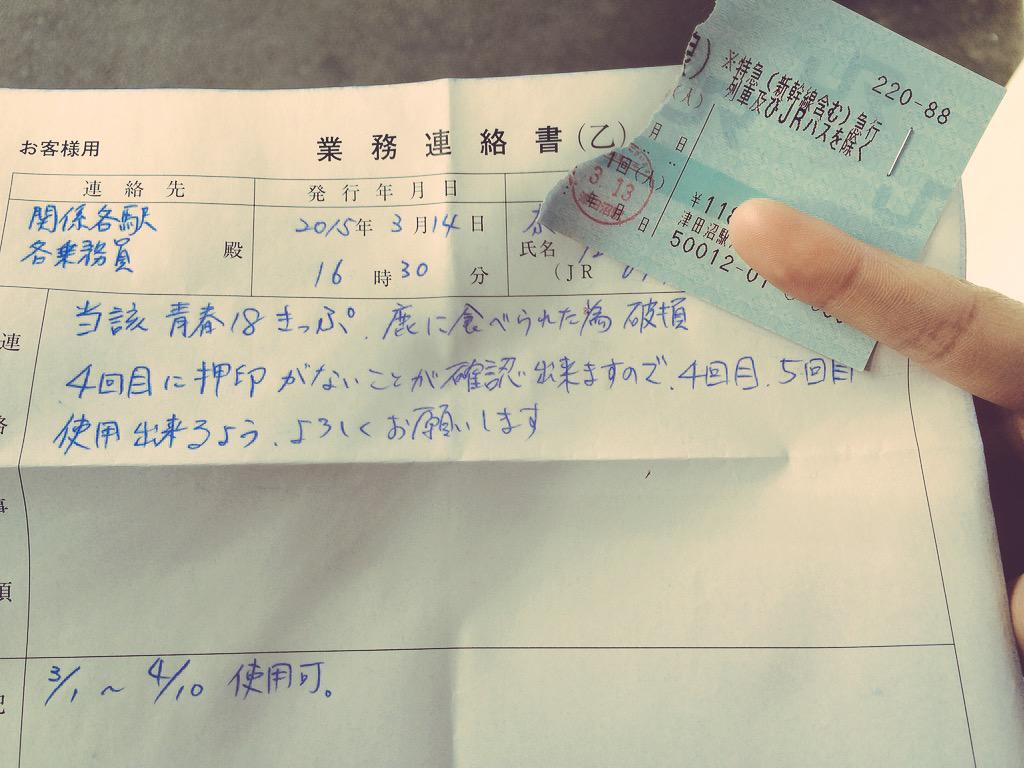 お客様用
業務連絡書(乙)
連絡先
発行年月日
関係各駅
各乗務員
殿
2015年 3月14日
16時30分
氏名
(JR
連
当該 青春18きっぷ、鹿に食べられた為 破損
4回目に押印がないことが確認出来ますので、4回目、5回目
使用出来るよう、よろしくお願いします
事
項
3/1 〜 4/10 使用可。
220-88
※特急(新幹線含む)急行
列車及びJRバスを除く
(人)
月 日
1回(人)
3.13
年 月 日
¥118
津田沼駅
50012-01